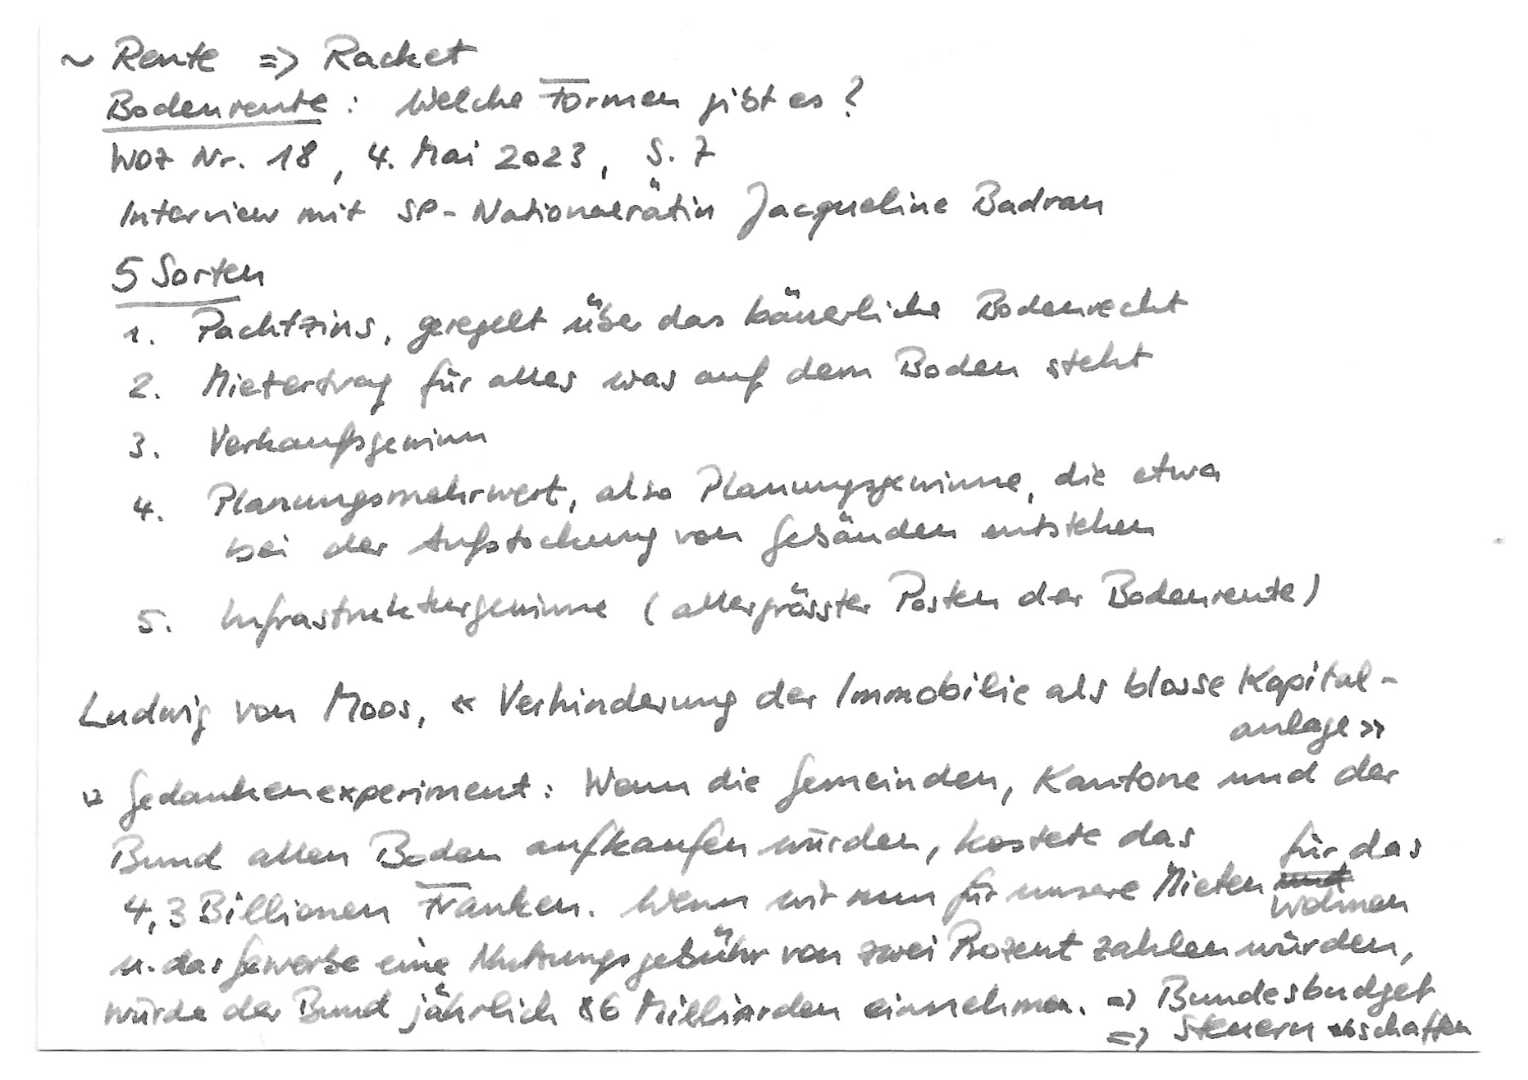 ~ Rente => Racket
Bodenrente: Welche Formen gibt es?
WOZ Nr. 18, 4. Mai 2023, S. 7
Interview mit SP-Nationalrätin Jacqueline Badran
5 Sorten
1. Pachtzins, geregelt über das bäuerliche Bodenrecht
2. Mietertrag für alles was auf dem Boden steht
3. Verkaufsgewinn
4. Planungsmehrwert, also Planungsgewinne, die etwa
bei der Aufstockung von Gebäuden entstehen
5. Infrastrukturgewinne (allergrösster Posten der Bodenrente)
Ludwig von Moos, « Verhinderung der Immobilie als blosse Kapital-
anlage »
Gedankenexperiment: Wenn die Gemeinden, Kantone und der
Bund allen Boden aufkaufen würden, kostete das
4,3 Billionen Franken. Wenn wir nun für unsere Mieten für das Wohnen
u. das Gewerbe eine Nutzungsgebühr von zwei Prozent zahlen würden,
würde der Bund jährlich 86 Milliarden einnehmen. => Bundesbudget
=> Steuern abschaffen